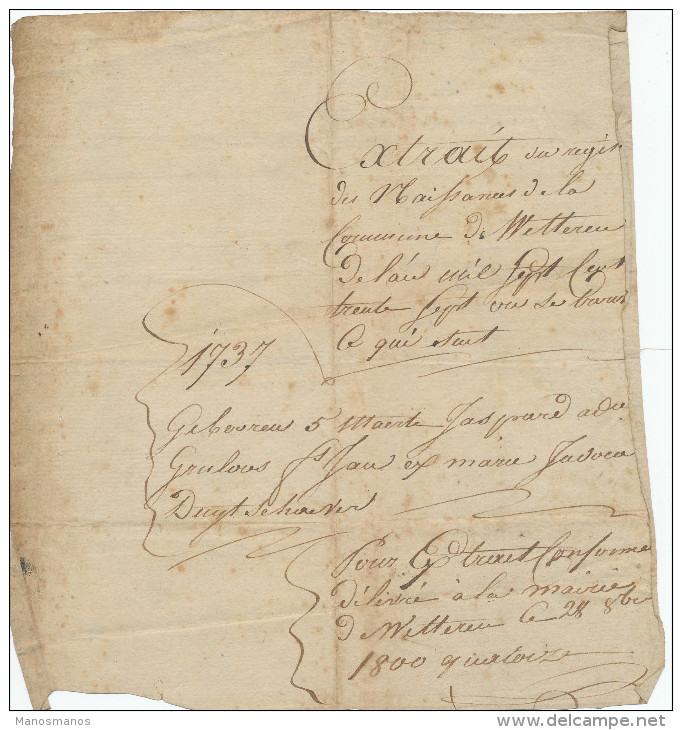 Extrait du regis
des Naissances de la
Commune de Wetteren
De l'an mil Sept Cent
trente Sept ou se trouve
Ce qui suit
1737
Geboren 5 Maerte Jaspard
Grulous fs Jan ex marie Judoca
Duytschaever
Pour Extrait Conforme
délivré à la mairie
de Wetteren le 28 8bre
1800 quatorze
Manosmanos
delcampe.net